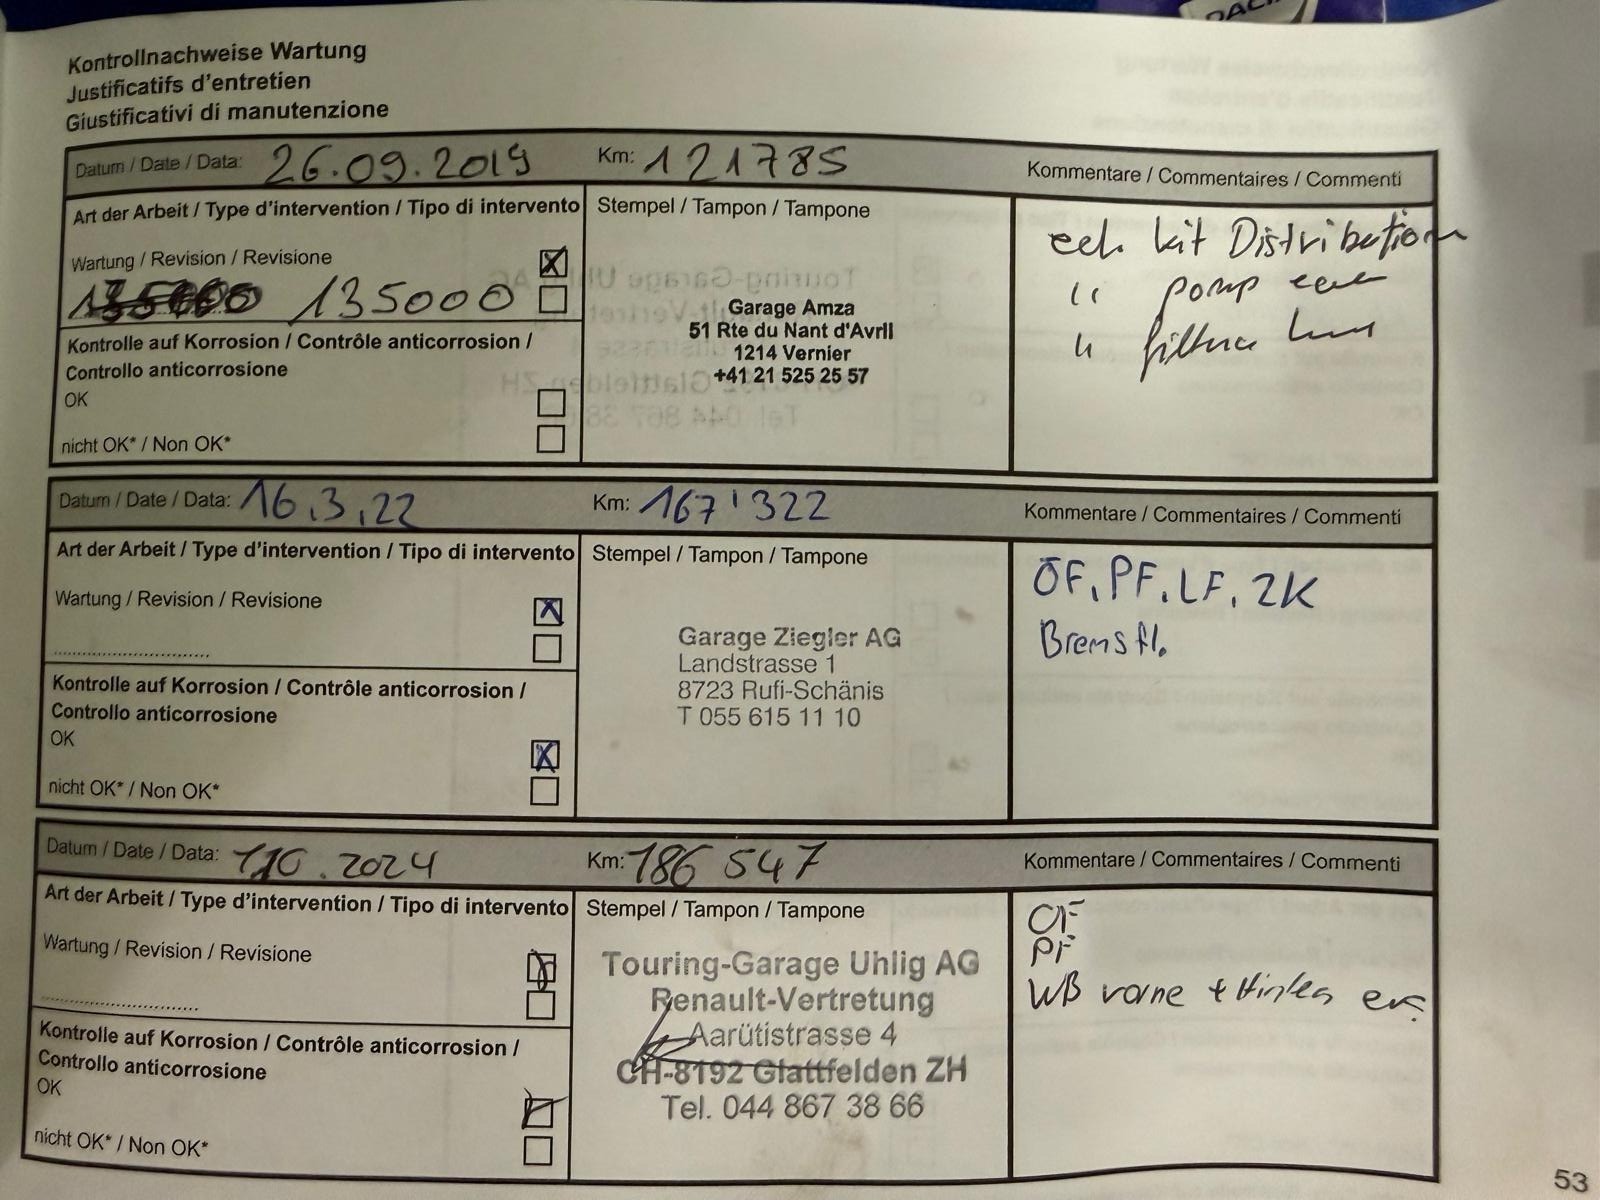 DACI
Kontrollnachweise Wartung
Justificatifs d'entretien
Giustificativi di manutenzione
Datum / Date / Data: 26.09.2019 Km: 121785 Kommentare / Commentaires / Commenti
Art der Arbeit / Type d'intervention / Tipo di intervento
Wartung / Revision / Revisione
135000
Kontrolle auf Korrosion / Contrôle anticorrosion /
Controllo anticorrosione
OK
nicht OK* / Non OK*
Stempel / Tampon / Tampone
Garage Amza
51 Rte du Nant d'Avril
1214 Vernier
+41 21 525 25 57
ech kit Distribution
" pomp eau
" filtre
Datum / Date / Data: 16.3.22 Km: 167'322 Kommentare / Commentaires / Commenti
Art der Arbeit / Type d'intervention / Tipo di intervento
Wartung / Revision / Revisione
Kontrolle auf Korrosion / Contrôle anticorrosion /
Controllo anticorrosione
OK
nicht OK* / Non OK*
Stempel / Tampon / Tampone
Garage Ziegler AG
Landstrasse 1
8723 Rufi-Schänis
T 055 615 11 10
ÖF, PF, LF, ZK
Bremsfl.
Datum / Date / Data: 1.10.2024 Km: 186 547 Kommentare / Commentaires / Commenti
Art der Arbeit / Type d'intervention / Tipo di intervento
Wartung / Revision / Revisione
Kontrolle auf Korrosion / Contrôle anticorrosion /
Controllo anticorrosione
OK
nicht OK* / Non OK*
Stempel / Tampon / Tampone
Touring-Garage Uhlig AG
Renault-Vertretung
Aarütistrasse 4
CH-8192 Glattfelden ZH
Tel. 044 867 38 66
OF
PF
WB vorne + Hinten ers.
53